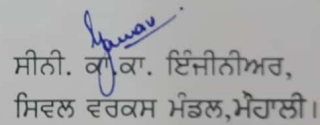 ਸੀਨੀ. ਕਾ.ਕਾ. ਇੰਜੀਨੀਅਰ,
ਸਿਵਲ ਵਰਕਸ ਮੰਡਲ,ਮੋਹਾਲੀ।